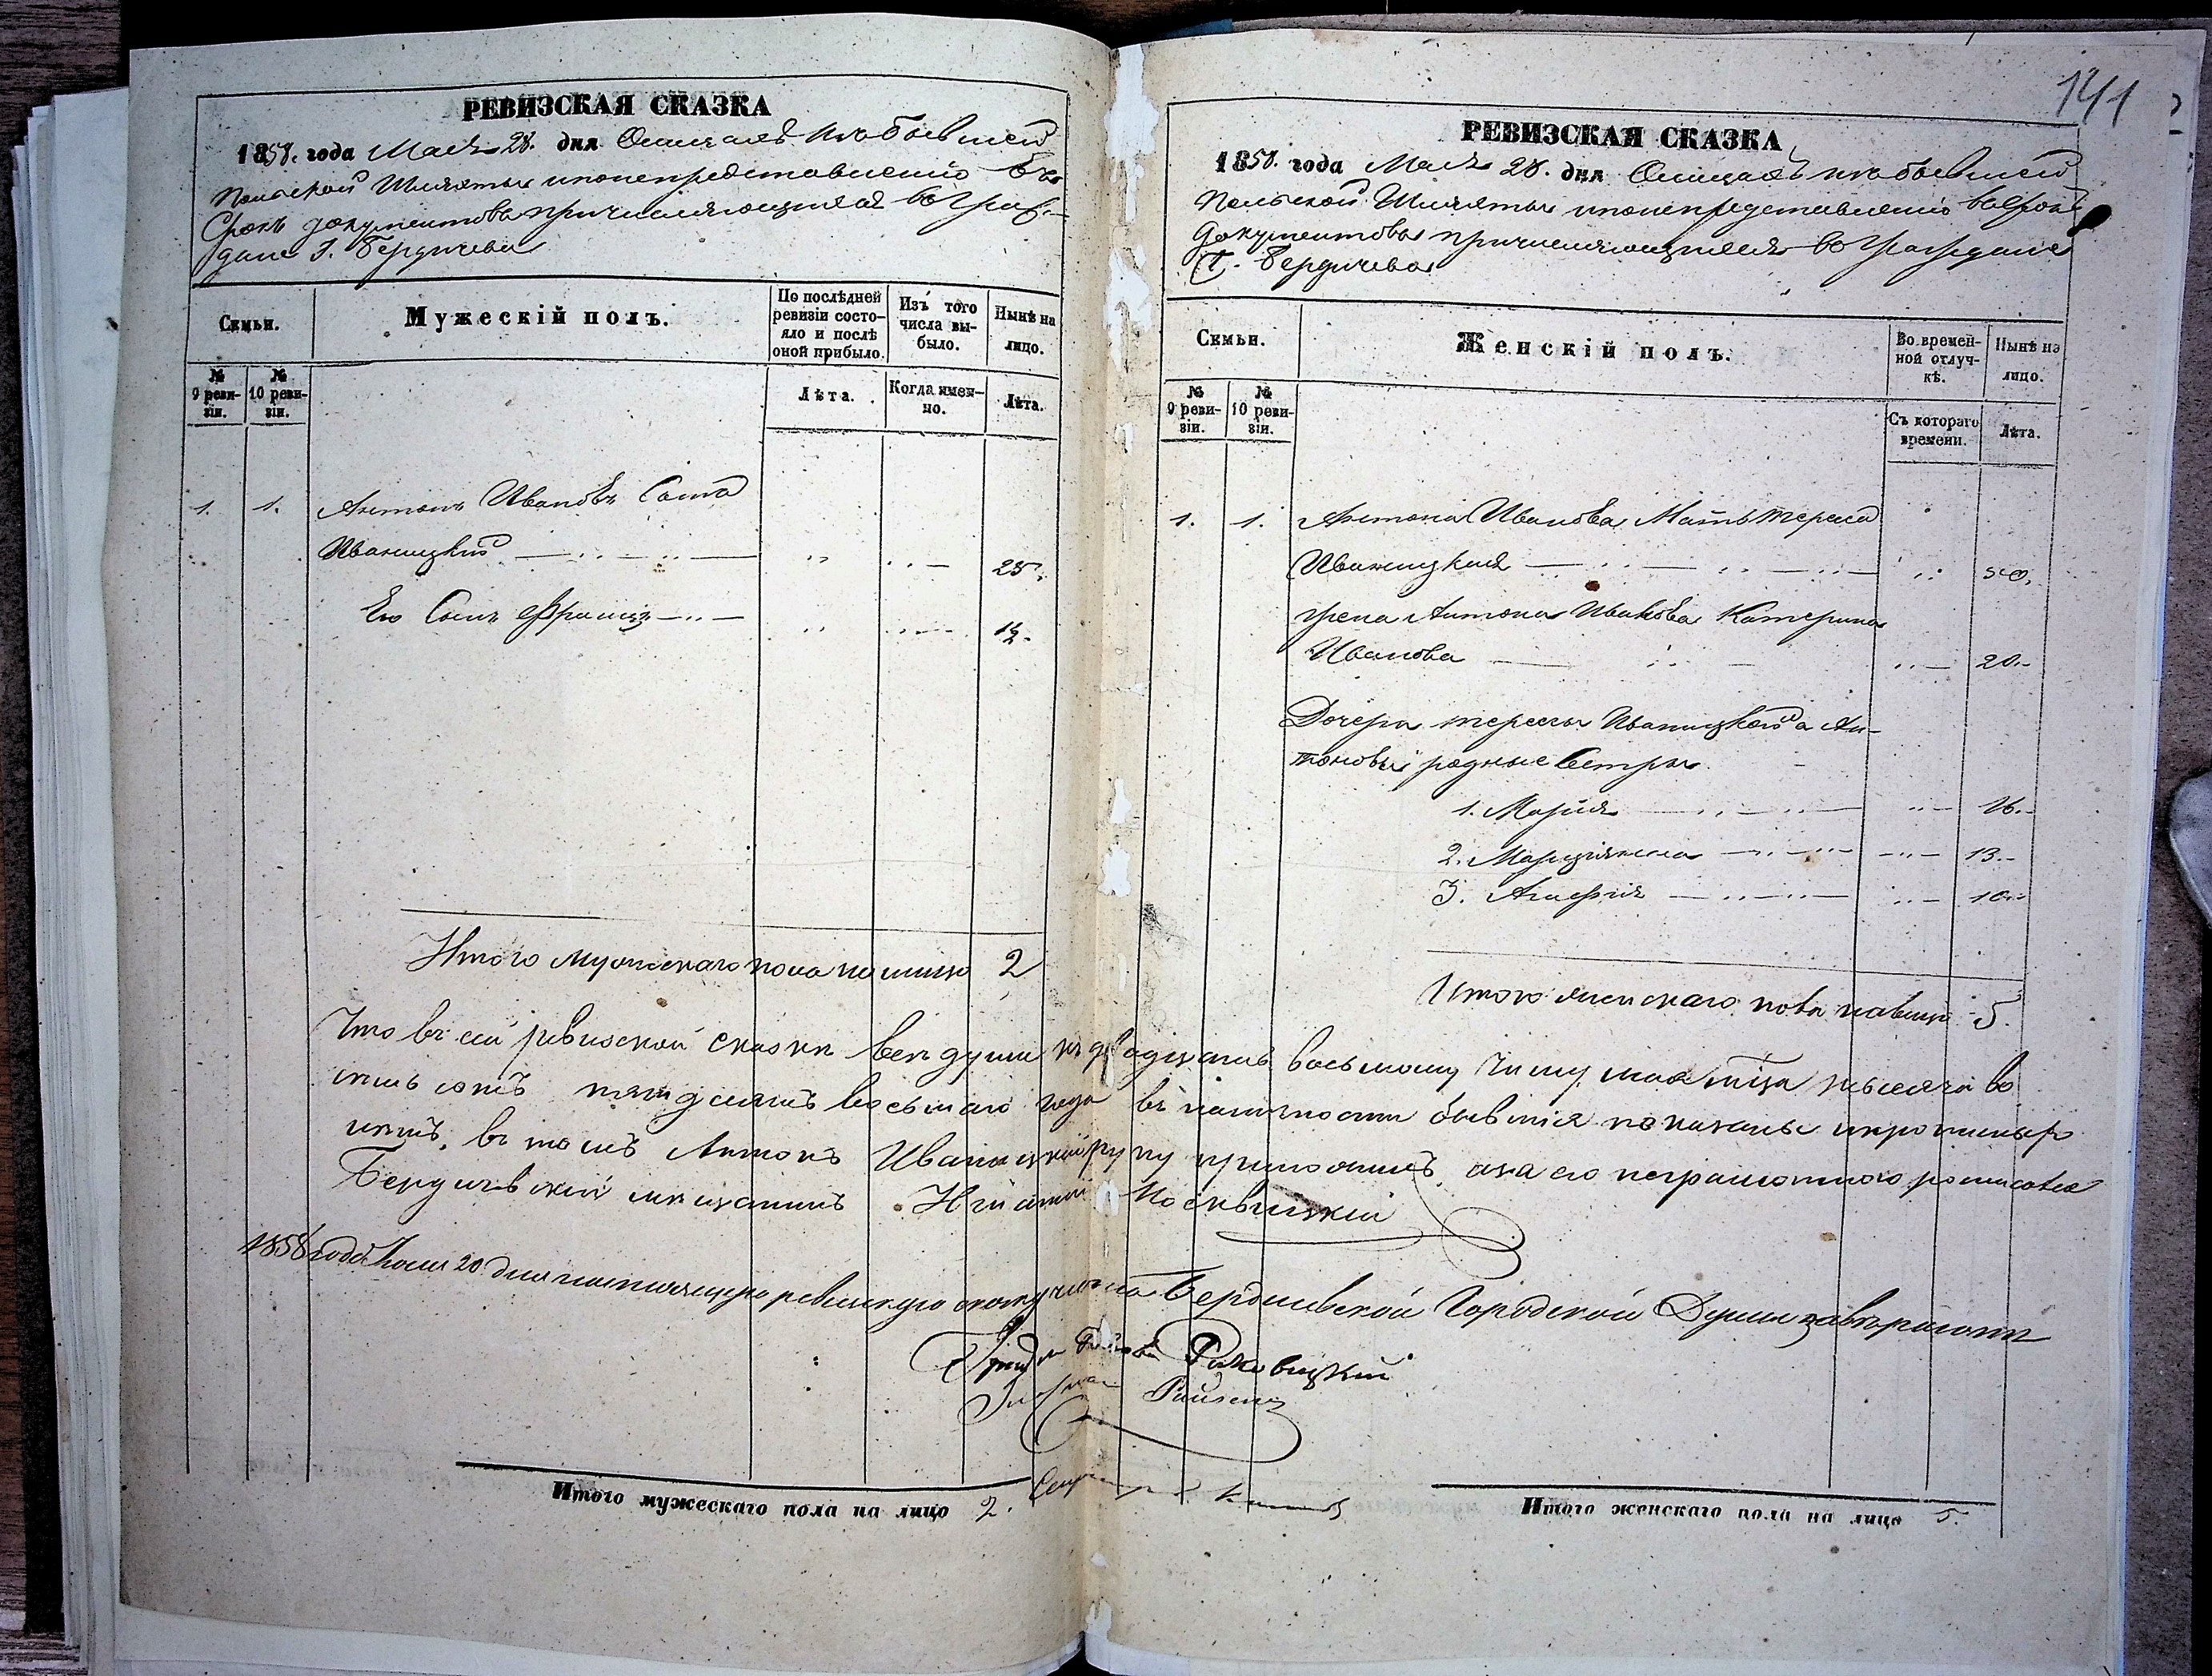 РЕВИЗСКАЯ СКАЗКА
1858. года Мая 28. дня О лицахъ изъ бывшей
Польской Шляхты и по непредставленію въ
Срокъ документовъ причисляющихся въ Граж-
дане Г. Бердичева
Семьи.
Мужескій полъ.
По послѣдней ревизіи состо-
яло и послѣ
оной прибыло.
Изъ того
числа вы-
было.
Нынѣ на
лицо.
№
9 реви-
зіи.
№
10 реви-
зіи.
Лѣта.
Когда имен-
но.
Лѣта.
1. 1. Антонъ Ивановъ Сынъ
Иваницкій 25.
Его Сынъ Францъ 1/2
Итого мужескаго пола на лицо 2
141
РЕВИЗСКАЯ СКАЗКА
1858. года Мая 28. дня О лицахъ изъ бывшей
Польской Шляхты и по непредставленію въ срокъ
документовъ причисляющихся въ Граждане
Г. Бердичева
Семьи.
Женскій полъ.
Во времен-
ной отлуч-
кѣ.
Нынѣ на
лицо.
№
9 реви-
зіи.
№
10 реви-
зіи.
Съ котораго
времени.
Лѣта.
1. 1. Антона Иванова Мать Тереса
Иваницкая 50.
жена Антона Иванова Катерина
Иванова 20.
Дочери Терессы Иваницкой а Ан-
тоновы родные Сестры
1. Марія 16.
2. Марціянна 13.
3. 10.
Итого женскаго пола налицо 5.
Что въ сей ревизской сказкѣ всѣ души къ двадцать восьмому числу мая мѣсяца тысяча во
семь сотъ пятдесятъ восьмаго года въ наличности бывшія показаны и
въ томъ Антонъ Иваницкій руку приложилъ, а за его неграмотного росписался
Бердичевскій мѣщанинъ Москвицкій
1858 года 20 дня настоящую ревизскую сказку Бердичевской Городской Думы
Итого мужескаго пола на лицо 2.
Итого женскаго пола на лицо 5.